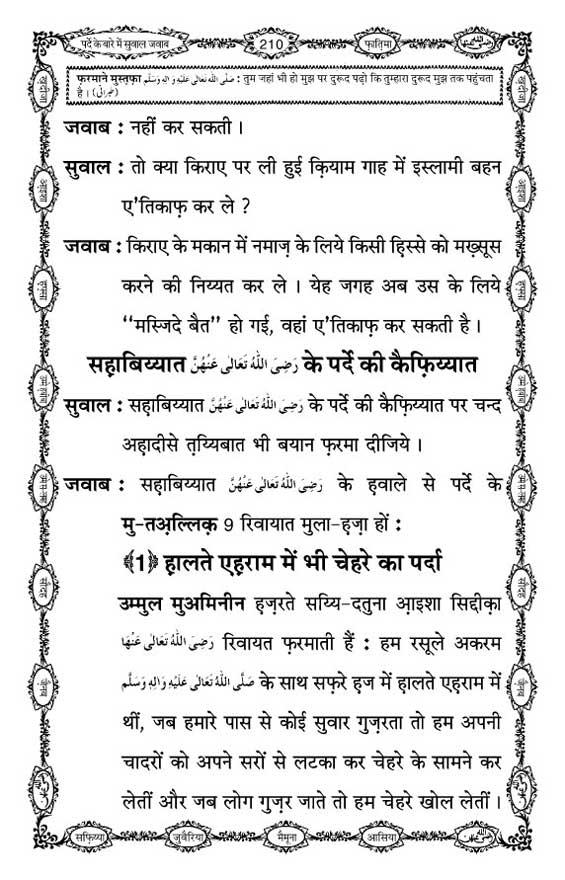 पर्दे के बारे में सुवाल जवाब
210
फ़ातिमा
फ़रमाने मुस्तफ़ा صَلَّى اللهُ تَعَالٰى عَلَيْهِ وَاٰلِهٖ وَسَلَّم : तुम जहां भी हो मुझ पर दुरूद पढ़ो कि तुम्हारा दुरूद मुझ तक पहुंचता
है । (طبرانی)
जवाब : नहीं कर सकती ।
सुवाल : तो क्या किराए पर ली हुई क़ियाम गाह में इस्लामी बहन
ए'तिकाफ़ कर ले ?
जवाब : किराए के मकान में नमाज़ के लिये किसी हिस्से को मख़्सूस
करने की निय्यत कर ले । येह जगह अब उस के लिये
‘‘मस्जिदे बैत’’ हो गई, वहां ए'तिकाफ़ कर सकती है ।
सह़ाबिय्यात رَضِىَ اللهُ تَعَالٰى عَنْهُنَّ के पर्दे की कैफ़िय्यात
सुवाल : सह़ाबिय्यात رَضِىَ اللهُ تَعَالٰى عَنْهُنَّ के पर्दे की कैफ़िय्यात पर चन्द
अह़ादीसे त़य्यिबात भी बयान फ़रमा दीजिये ।
जवाब : सह़ाबिय्यात رَضِىَ اللهُ تَعَالٰى عَنْهُنَّ के ह़वाले से पर्दे के
मु-तअ़ल्लिक़ 9 रिवायात मुला-ह़ज़ा हों :
﴾1﴿ ह़ालते एह़राम में भी चेहरे का पर्दा
उम्मुल मुअमिनीन ह़ज़रते सय्यि-दतुना आ़इशा सिद्दीक़ा
رَضِىَ اللهُ تَعَالٰى عَنْهَا रिवायत फ़रमाती हैं : हम रसूले अकरम
صَلَّى اللهُ تَعَالٰى عَلَيْهِ وَاٰلِهٖ وَسَلَّم के साथ सफ़रे ह़ज में ह़ालते एह़राम में
थीं, जब हमारे पास से कोई सुवार गुज़रता तो हम अपनी
चादरों को अपने सरों से लटका कर चेहरे के सामने कर
लेतीं और जब लोग गुज़र जाते तो हम चेहरे खोल लेतीं ।
सफ़िय्या
जुवैरिया
मैमूना
आसिया